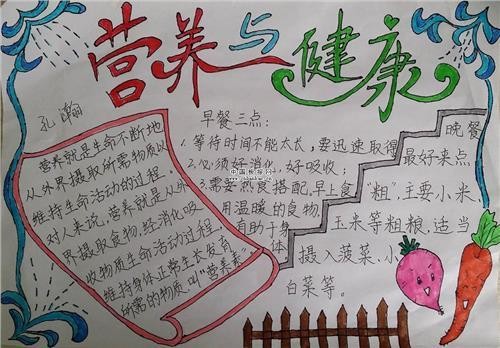 营养与健康
孔瀚
营养就是生命不断地
从外界摄取所需物质以
维持生命活动的过程。
对人来说,营养就是从外
界摄取食物,经消化吸
收物质生命活动过程,
维持身体正常生长发育
所需的物质叫"营养素"
早餐三点:
1.等待时间不能太长,要迅速取得
2.必须好消化,好吸收;
3.需要燕食搭配,早上食
用温暖的食物,
有助于身
体
晚餐
最好来点
"粗",主要小米,
玉米等粗粮,适当
摄入菠菜、小
白菜等。
中国板报网